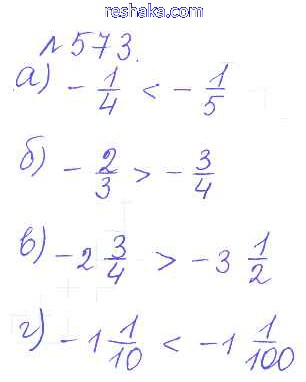 reshaka.com
№573.
а) -1/4 < -1/5
б) -2/3 > -3/4
в) -2 3/4 > -3 1/2
г) -1 1/10 < -1 1/100